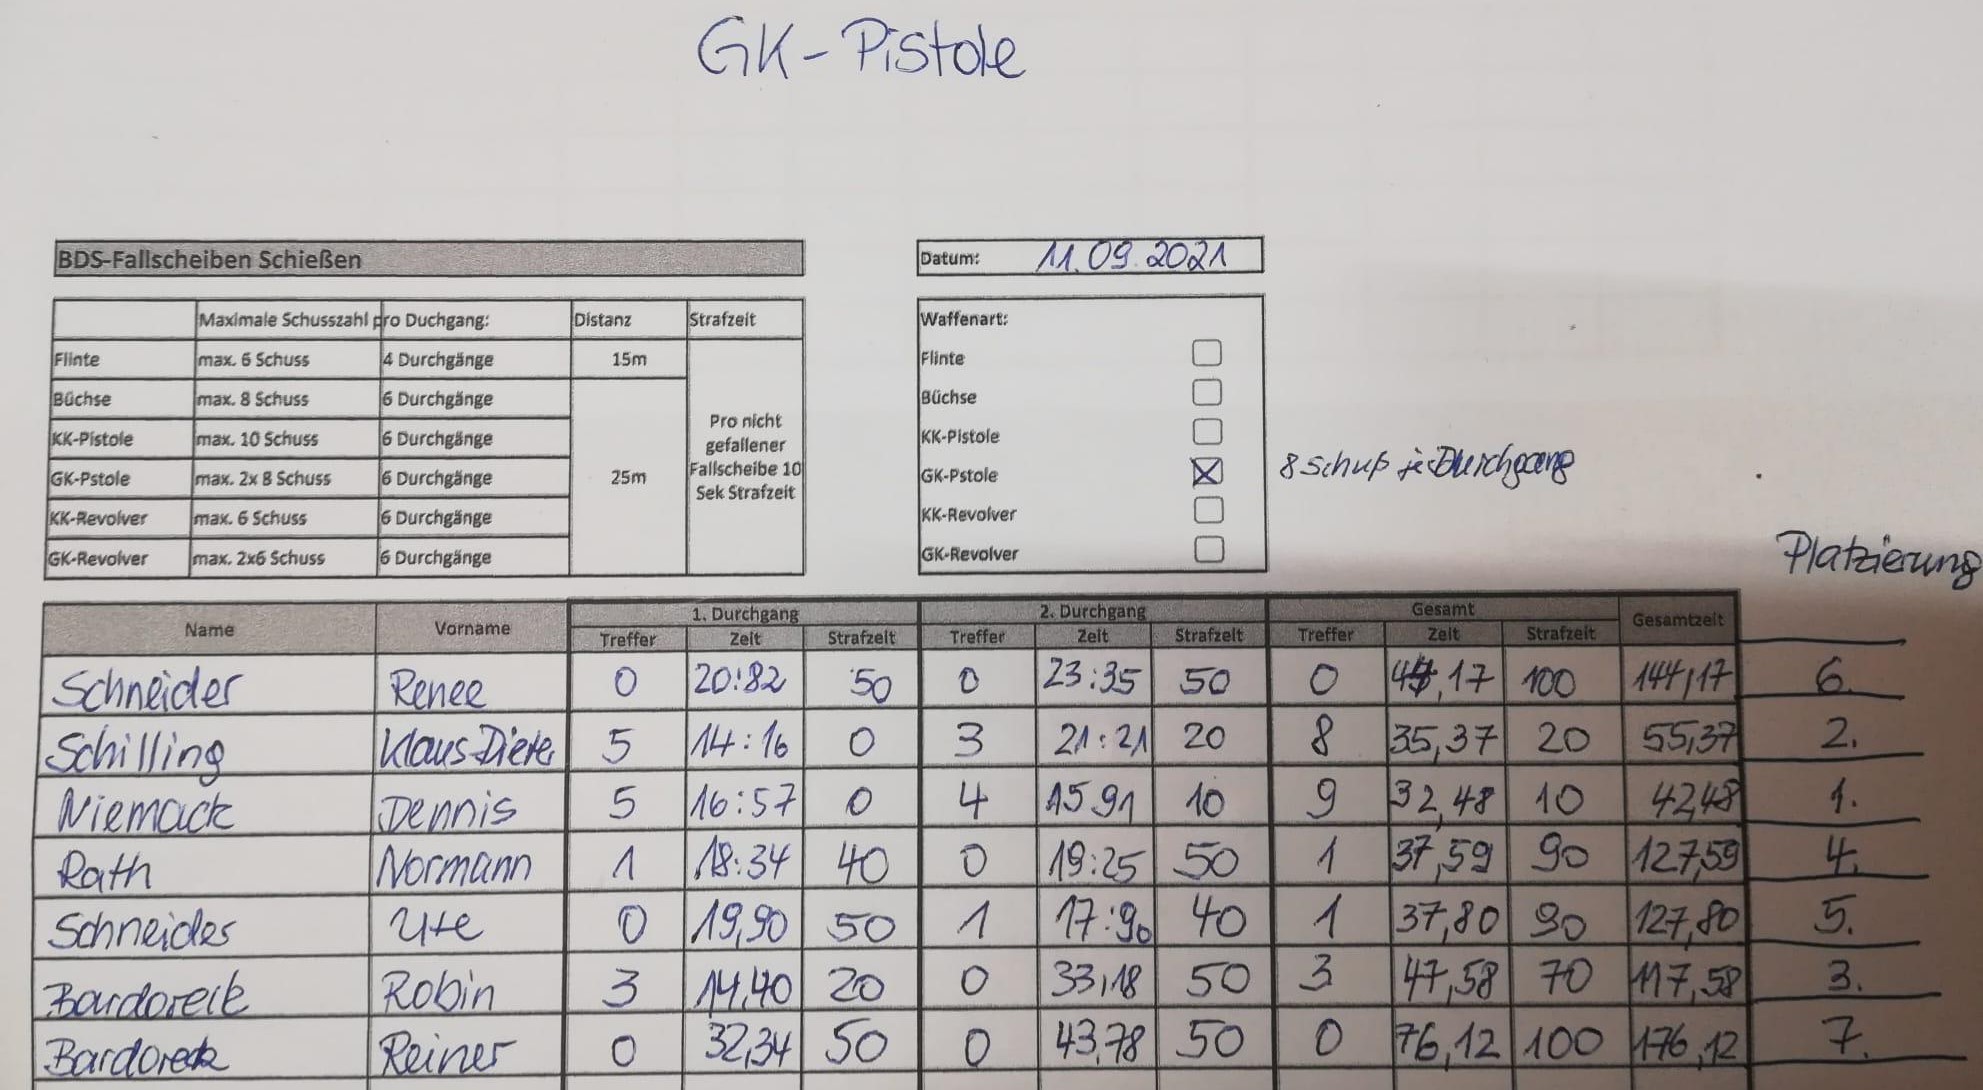 GK-Pistole
BDS-Fallscheiben Schießen
Datum: 11.09.2021
Maximale Schusszahl pro Duchgang: Distanz Strafzeit
Flinte max. 6 Schuss 4 Durchgänge 15m
Büchse max. 8 Schuss 6 Durchgänge
KK-Pistole max. 10 Schuss 6 Durchgänge
GK-Pstole max. 2x 8 Schuss 6 Durchgänge 25m
KK-Revolver max. 6 Schuss 6 Durchgänge
GK-Revolver max. 2x6 Schuss 6 Durchgänge
Pro nicht
gefallener
Fallscheibe 10
Sek Strafzeit
Waffenart:
Flinte
Büchse
KK-Pistole
GK-Pstole 8 Schuß je Durchgang
KK-Revolver
GK-Revolver
Platzierung
Name Vorname 1. Durchgang 2. Durchgang Gesamt Gesamtzeit
Treffer Zeit Strafzeit Treffer Zeit Strafzeit Treffer Zeit Strafzeit
Schneider Renee 0 20:82 50 0 23:35 50 0 44,17 100 144,17 6.
Schilling Klaus-Dieter 5 14:16 0 3 21:21 20 8 35,37 20 55,37 2.
Niemack Dennis 5 16:57 0 4 15 91 10 9 32,48 10 42,48 1.
Rath Normann 1 18:34 40 0 19:25 50 1 37,59 90 127,59 4.
Schneider Ute 0 19,90 50 1 17:90 40 1 37,80 90 127,80 5.
Bardoreck Robin 3 14,40 20 0 33,18 50 3 47,58 70 117,58 3.
Bardoreck Reiner 0 32,34 50 0 43,78 50 0 76,12 100 176,12 7.